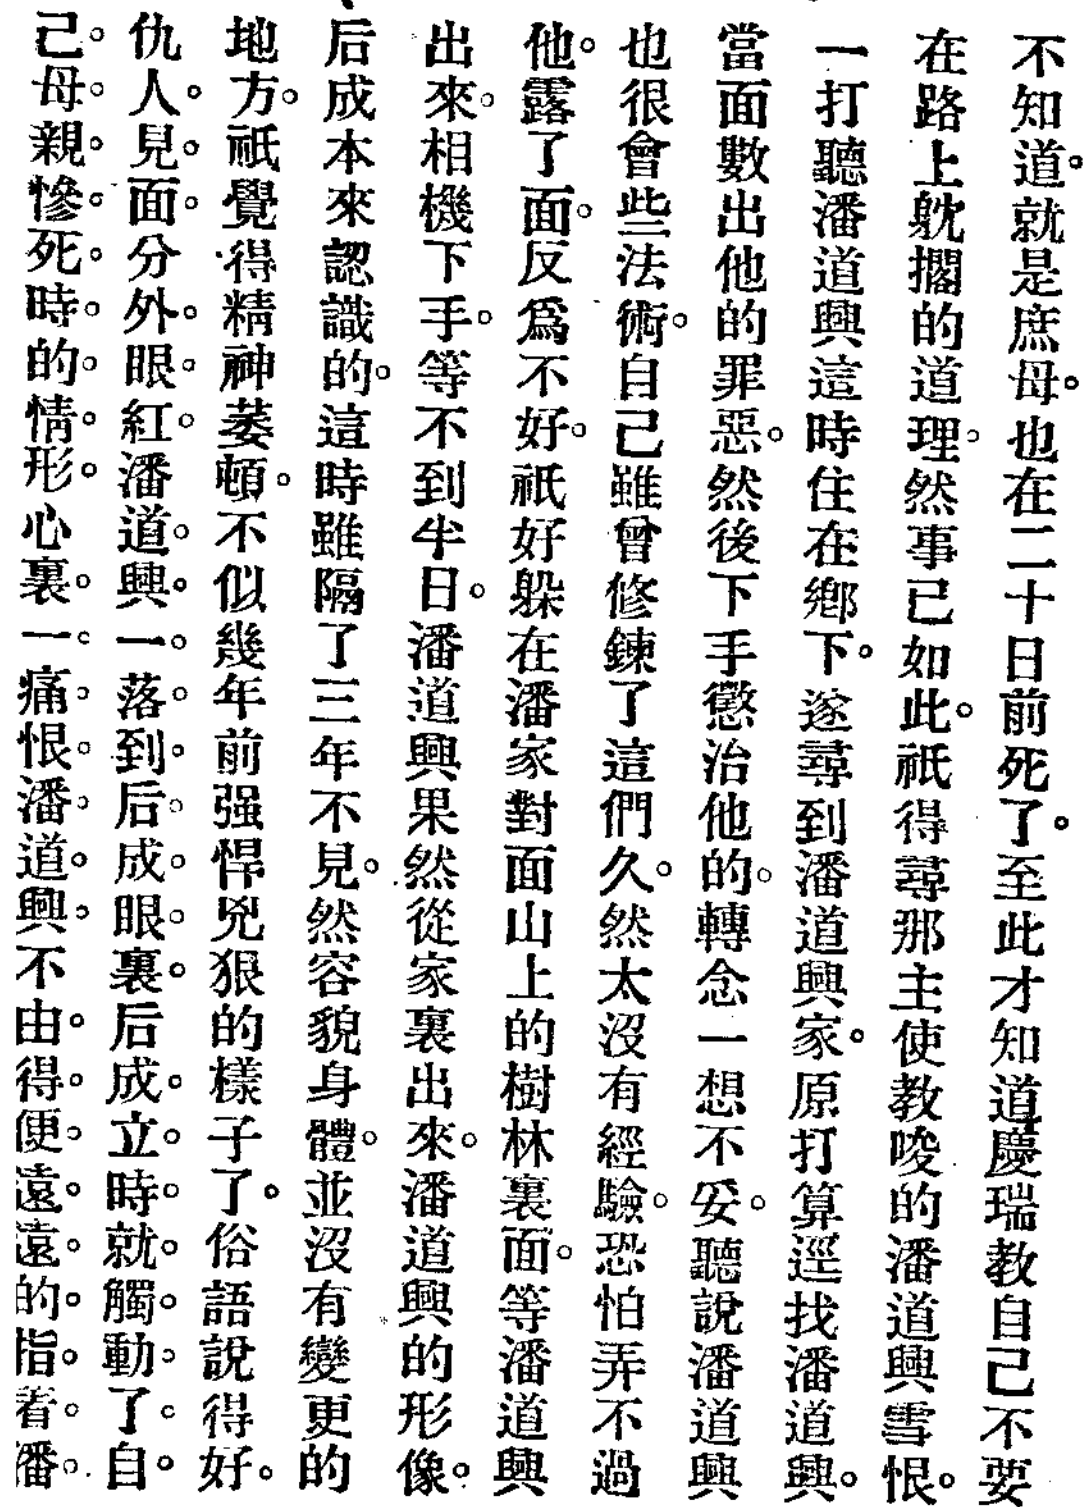 不知道。就是庶母。也在二十日前死了。至此才知道慶瑞教自己不要
在路上躭擱的道理。然事已如此。祇得尋那主使教唆的潘道興雪恨。
一打聽潘道興這時住在鄉下。遂尋到潘道興家。原打算逕找潘道興。
當面數出他的罪惡。然後下手懲治他的。轉念一想不妥。聽說潘道興
也很會些法術。自己雖曾修鍊了這們久。然太沒有經驗。恐怕弄不過
他。露了面。反爲不好。祇好躱在潘家對面山上的樹林裏面。等潘道興
出來。相機下手。等不到半日。潘道興果然從家裏出來。潘道興的形像。
后成本來認識的。這時雖隔了三年不見。然容貌身體。並沒有變更的
地方。祇覺得精神萎頓。不似幾年前强悍兇狠的樣子了。俗語說得好。
仇人。見。面。分外。眼。紅。潘道。興。一。落。到。后。成。眼。裏。后成。立。時。就。觸。動。了。自。
己。母。親。慘。死。時。的。情。形。心裏。一。痛。恨。潘。道。興。不由。得。便。遠。遠。的。指。着。潘。